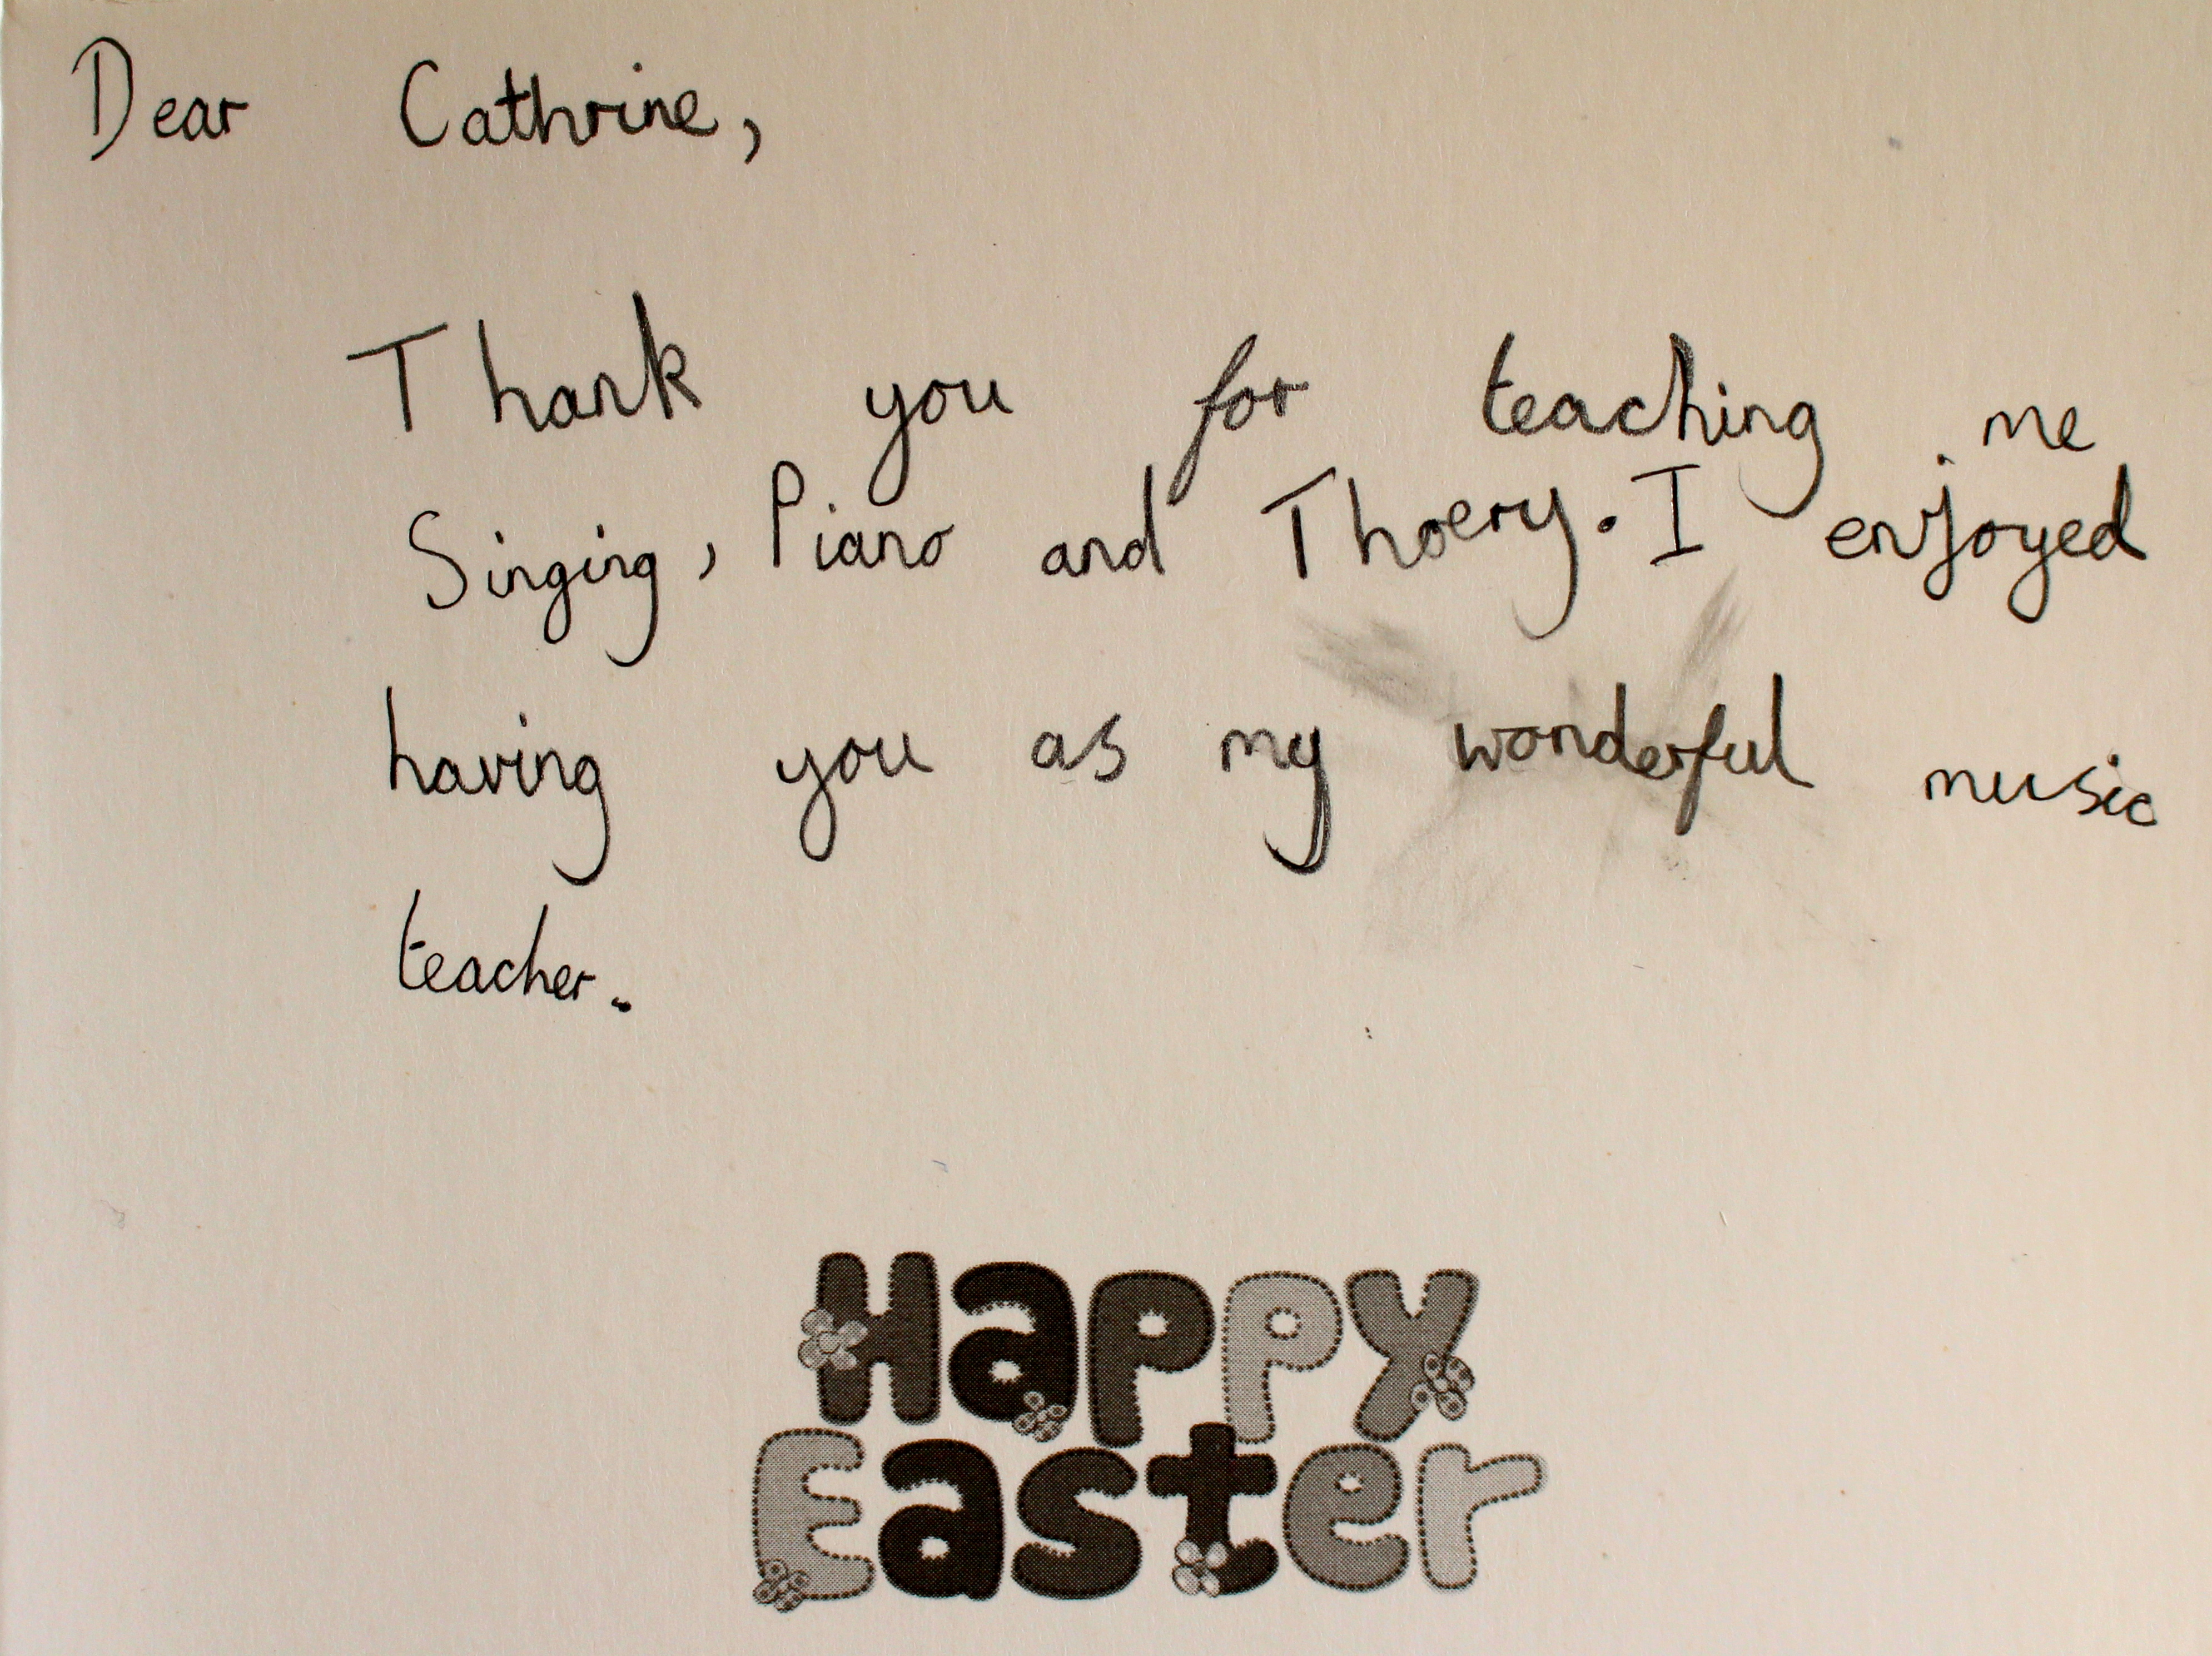 Dear Cathrine,
Thank you for teaching me
Singing, Piano and Thoery. I enjoyed
having you as my wonderful music
teacher.
Happy
Easter